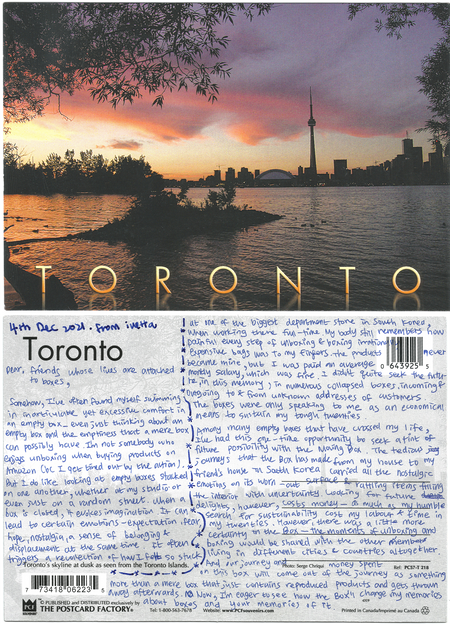 TORONTO
4th Dec 2021. From
Toronto
Dear, friends whose lives are attached
to boxes,
Somehow, I've often found myself swimming
in inarticulate yet excessive comfort in
an empty box - even just thinking about an
empty box and the emptiness that a mere box
can possibly have. I'm not somebody who
enjoys unboxing when buying products on
Amazon (bc I get tired out by the action).
But I do like looking at empty boxes stacked
on one another, whether at my studio or
even just on a random street. When a
box is closed, it evokes imagination. It can
lead to certain emotions - expectation, fear,
hope, nostalgia, a sense of belonging &
displacement at the same time. It often
triggers a recollection of how I felt so stuck
Toronto's skyline at dusk as seen from the Toronto Islands.
at one of the biggest department store in South Korea,
when working there full-time. My body still remembers how
painful every step of unboxing & boxing
expensive bags was to my fingers. The products never
became mine, but I was paid on average
monthly salary, which was ok. I didn't quite seek the
in this memory; in numerous collapsed boxes, incoming &
outgoing to & from unknown addresses of customers.
The boxes were only speaking to me as an economical
means to sustain my tough twenties.
Among many empty boxes that have crossed my life,
I've had this one-time opportunity to seek a hint of
future possibility with the Mailing Box. The tedious
journeys that the Box has made from my house to my
friends house in South Korea carried all the nostalgic
emotions on its worn out surface & rattling items filling
the interior with uncertainty. Looking for future
delights, however, costs money - as much as my humble
search for sustainability cost my labour & time in
my twenties. However, there was a little more
certainty in the Box - the moments of unboxing and
boxing would be shared with the other members
living in different cities & countries altogether.
And our journey and money spent
Photo: Serge Chriqui
Ref. PCST-T 218
on this box will come out of the journey as something
more than a mere box that just contains reproduced products and gets thrown
away afterwards. Now, I'm eager to see how the Box4 change my memories
about boxes and your memories of it.
0 643925 5
7 73418 06223
© PUBLISHED and DISTRIBUTED exclusively by
THE POSTCARD FACTORY®
Tel: 1-800-563-7678 Website: www.PCFSouvenirs.com
Printed in Canada/Imprimé au Canada